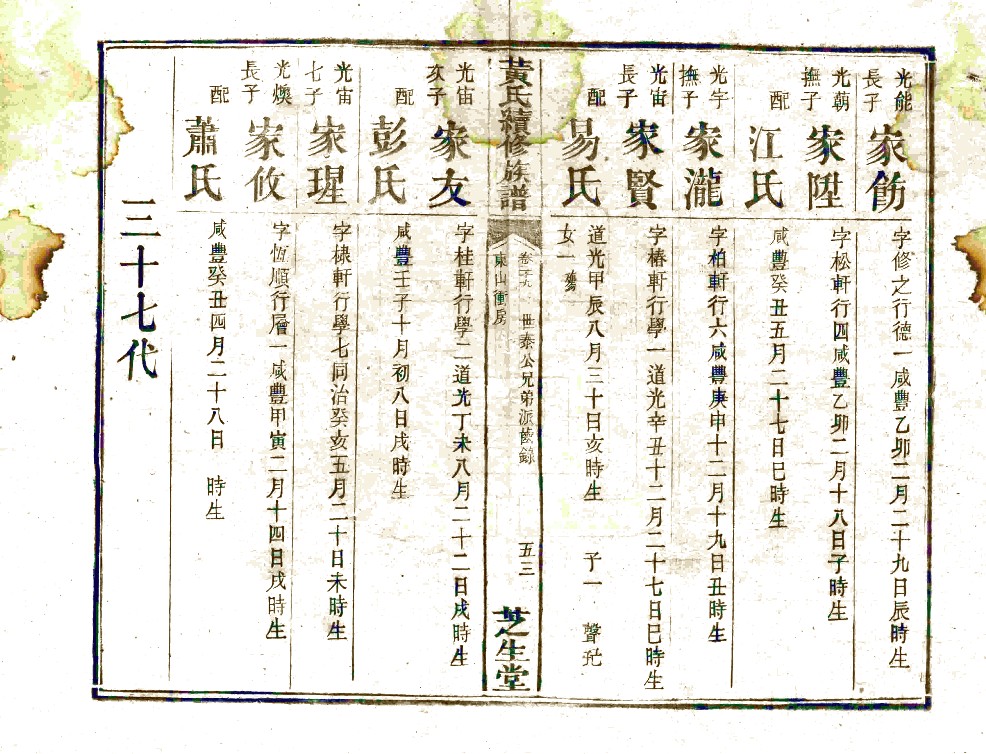 光能
長子
家飭
字修之行德一咸豐乙卯二月二十九日辰時生
光朝
撫子
家陞
字松軒行四咸豐乙卯二月十八日子時生
配
江氏
咸豐癸丑五月二十七日巳時生
光宇
撫子
家瀧
字柏軒行六咸豐庚申十二月十九日丑時生
光宙
長子
家賢
字椿軒行學一道光辛丑十二月二十七日巳時生
配
易氏
道光甲辰八月三十日亥時生 子一 聲
女一
黃氏續修族譜
世泰公兄弟派齒錄
東山衝房
五三
芝生堂
光宙
次子
家友
字桂軒行學二道光丁未八月二十二日戌時生
配
彭氏
咸豐壬子十月初八日戌時生
光宙
七子
家瑆
字棣軒行學七同治癸亥五月二十日未時生
光煥
長子
家攸
字恆順行層一咸豐甲寅二月十四日戌時生
配
蕭氏
咸豐癸丑四月二十八日 時生
三十七代